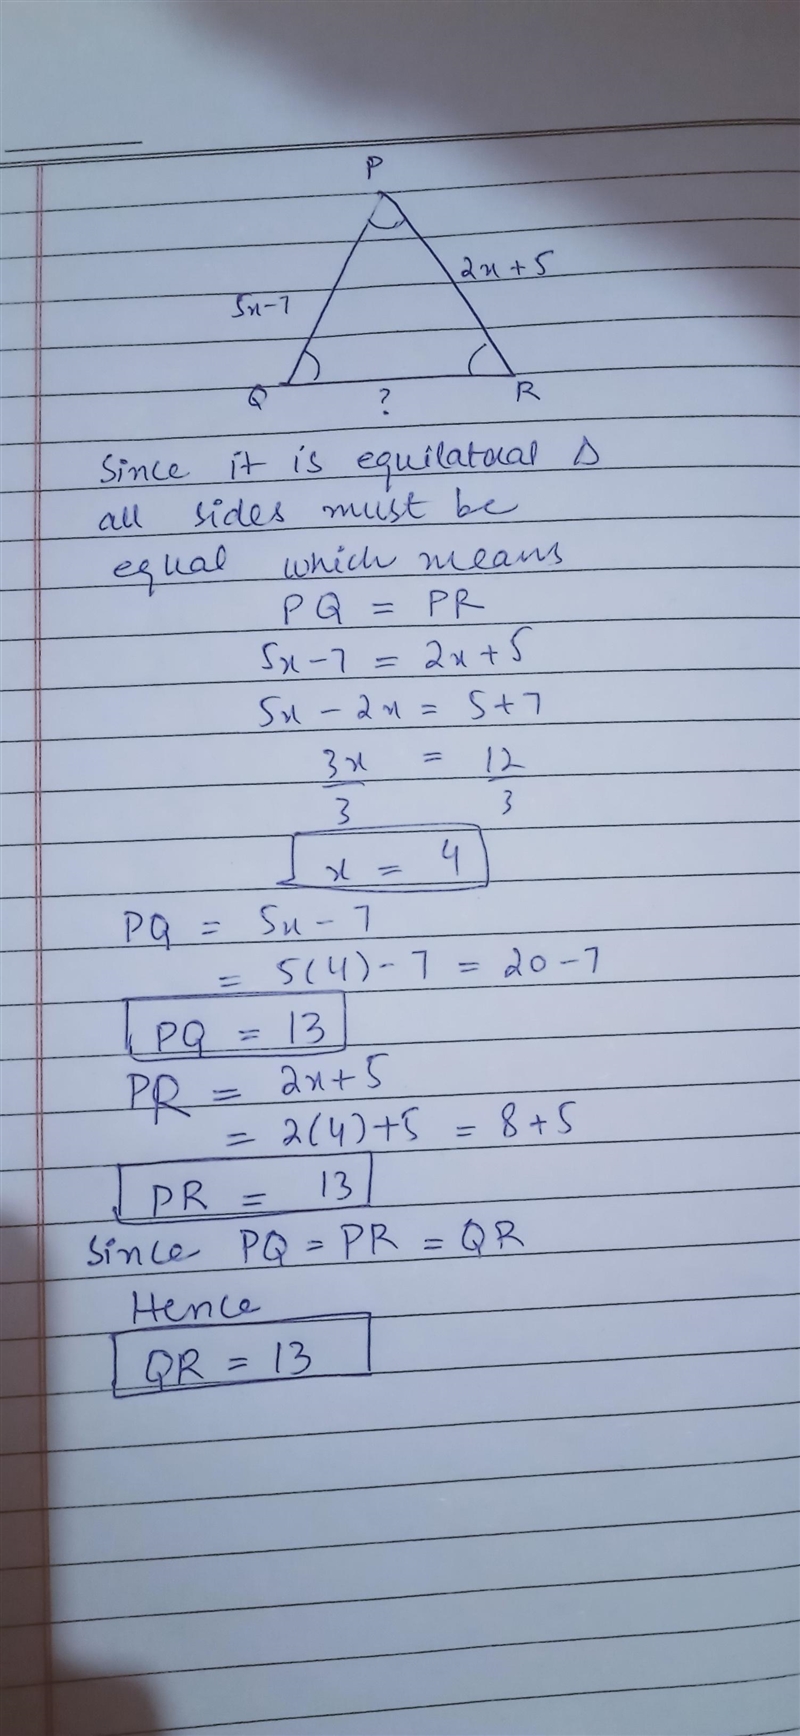 P
2x + 5
5x - 7
Q
?
R
Since it is equilateral Δ
all sides must be
equal which means
PQ = PR
5x - 7 = 2x + 5
5x - 2x = 5 + 7
3x/3 = 12/3
x = 4
PQ = 5x - 7
= 5(4) - 7 = 20 - 7
PQ = 13
PR = 2x + 5
= 2(4) + 5 = 8 + 5
PR = 13
Since PQ = PR = QR
Hence
QR = 13